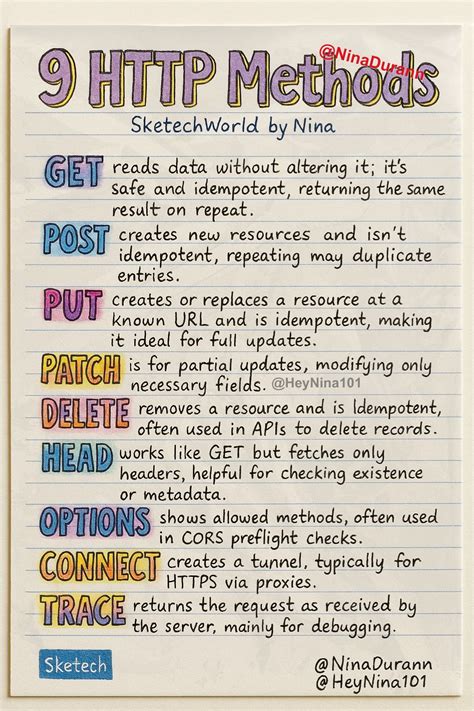 @NinaDurann
9 HTTP Methods
SketechWorld by Nina
GET reads data without altering it; it's
safe and idempotent, returning the same
result on repeat.
POST creates new resources and isn't
idempotent, repeating may duplicate
entries.
PUT creates or replaces a resource at a
known URL and is idempotent, making
it ideal for full updates.
PATCH is for partial updates, modifying only
necessary fields. @HeyNina101
DELETE removes a resource and is Idempotent,
often used in APIs to delete records.
HEAD works like GET but fetches only
headers, helpful for checking existence
or metadata.
OPTIONS shows allowed methods, often used
in CORS preflight checks.
CONNECT creates a tunnel, typically for
HTTPS via proxies.
TRACE returns the request as received by
the server, mainly for debugging.
Sketech
@NinaDurann
@HeyNina101